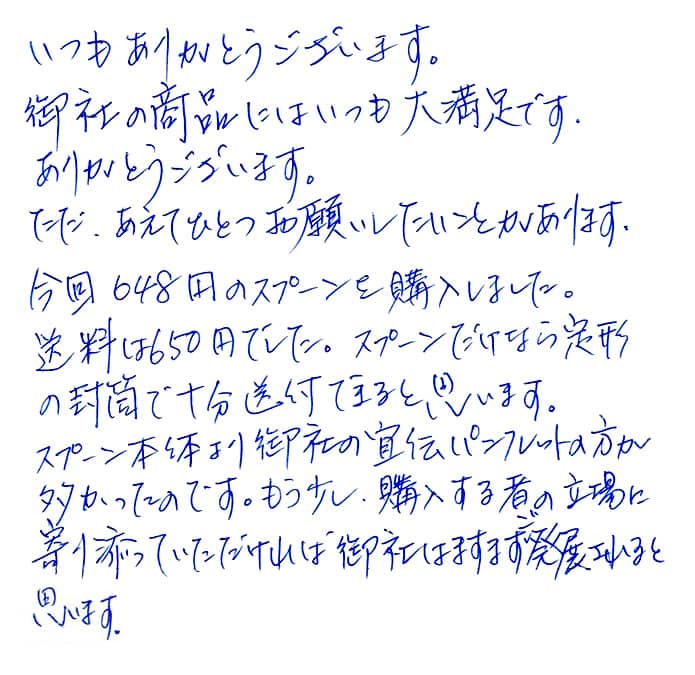 いつもありがとうございます。
御社の商品にはいつも大満足です.
ありがとうございます。
ただ、あえてひとつお願いしたいことがあります.
今回648円のスプーンを購入しました。
送料は650円でした。スプーンだけなら定形
の封筒で十分送付できると思います。
スプーン本体より御社の宣伝パンフレットの方が
多かったのです。もう少し、購入する者の立場に
寄り添っていただければ御社はますますご発展されると
思います.